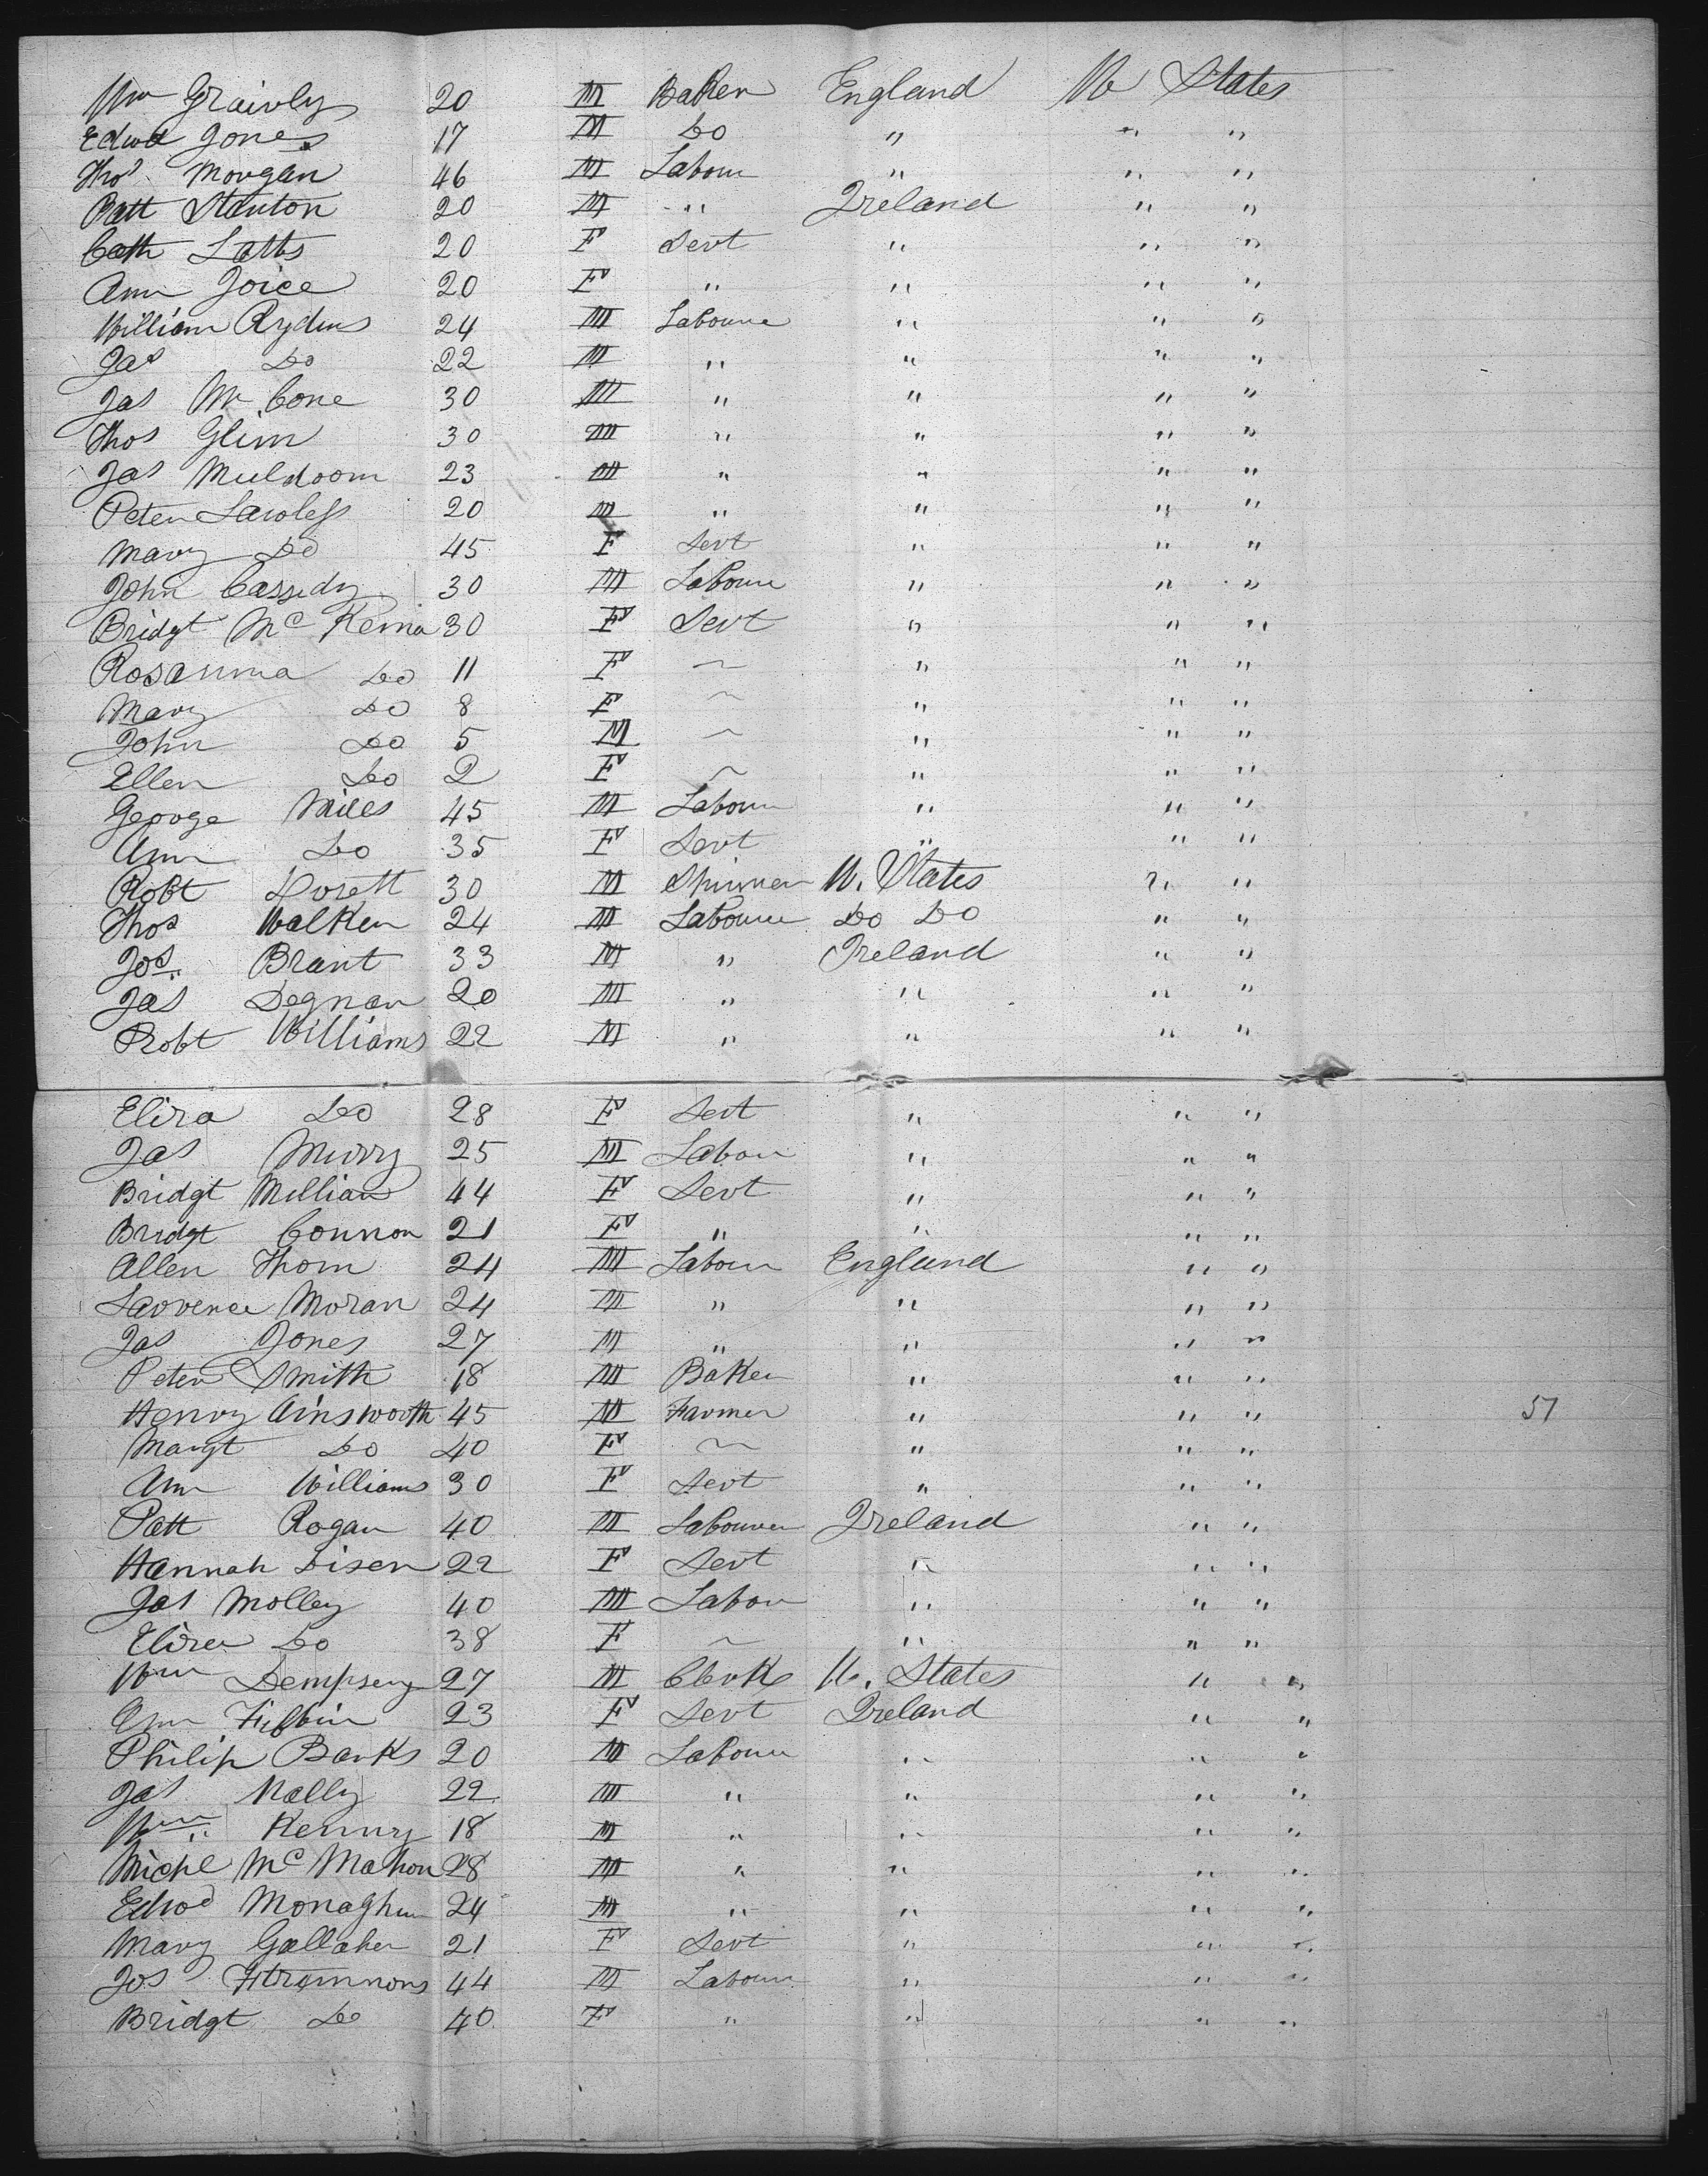 Wm Grainly 20 M Baker England U States
Edwd Jones 17 M Do " " "
Thos Morgan 46 M Labour " " "
Patt Stanton 20 M " Ireland " "
Cath Latts 20 F Servt " " "
Ann Joice 20 F " " " "
William Rydins 24 M Laboure " " "
Jas Do 22 M " " " "
Jas Mc Cone 30 M " " " "
Thos Glim 30 M " " " "
Jas Muldoom 23 M " " " "
Peter Lawless 20 M " " " "
Mary Do 45 F Servt " " "
John Cassidy 30 M Laboure " " "
Bridgt Mc Kenna 30 F Servt " " "
Rosanna Do 11 F ~ " " "
Mary Do 8 F ~ " " "
John Do 5 M ~ " " "
Ellen Do 2 F ~ " " "
George Miles 45 M Labour " " "
Ann Do 35 F Servt " " "
Robt Dorett 30 M Spinner U. States " "
Thos Walker 24 M Laboure Do Do " "
Jos Brant 33 M " Ireland " "
Jas Degnan 20 M " " " "
Robt Williams 22 M " " " "
Eliza Do 28 F Servt " " "
Jas Murry 25 M Labour " " "
Bridgt Millian 44 F Servt " " "
Bridgt Connon 21 F " " " "
Allen Thom 24 M Labour England " "
Lawrence Moran 24 M " " " "
Jas Jones 27 M " " " "
Peter Smith 18 M Baker " " "
Henry Ainsworth 45 M Farmer " " " 51
Margt Do 40 F ~ " " "
Ann Williams 30 F Servt " " "
Patt Rogan 40 M Labourer Ireland " "
Hannah Disen 22 F Servt " " "
Jas Molley 40 M Labour " " "
Eliza Do 38 F ~ " " "
Wm Dempsey 27 M Clerk U. States " "
Ann Filbin 23 F Servt Ireland " "
Philip Banks 20 M Laboure " " "
Jas Nally 22 M " " " "
Wm Kenny 18 M " " " "
Michl Mc Mahon 28 M " " " "
Edwd Monaghan 24 M " " " "
Mary Gallaher 21 F Servt " " "
Jos Fitzsimmons 44 M Labour " " "
Bridgt Do 40 F " " " "